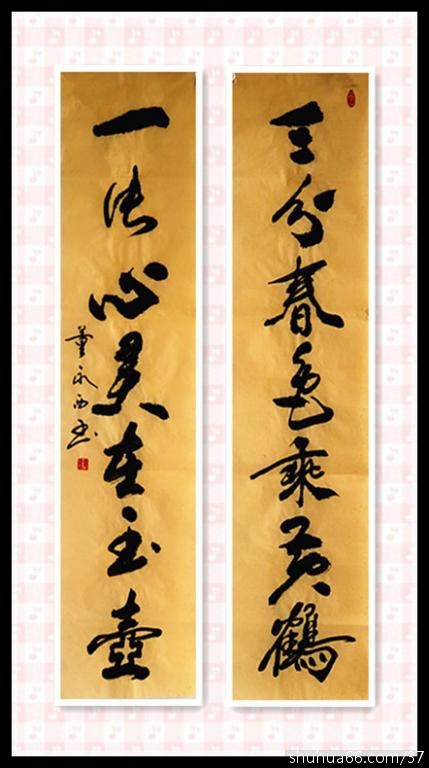 三分春色乘黄鶴
一心在玉壺
董永西书
shuhua66.com/37